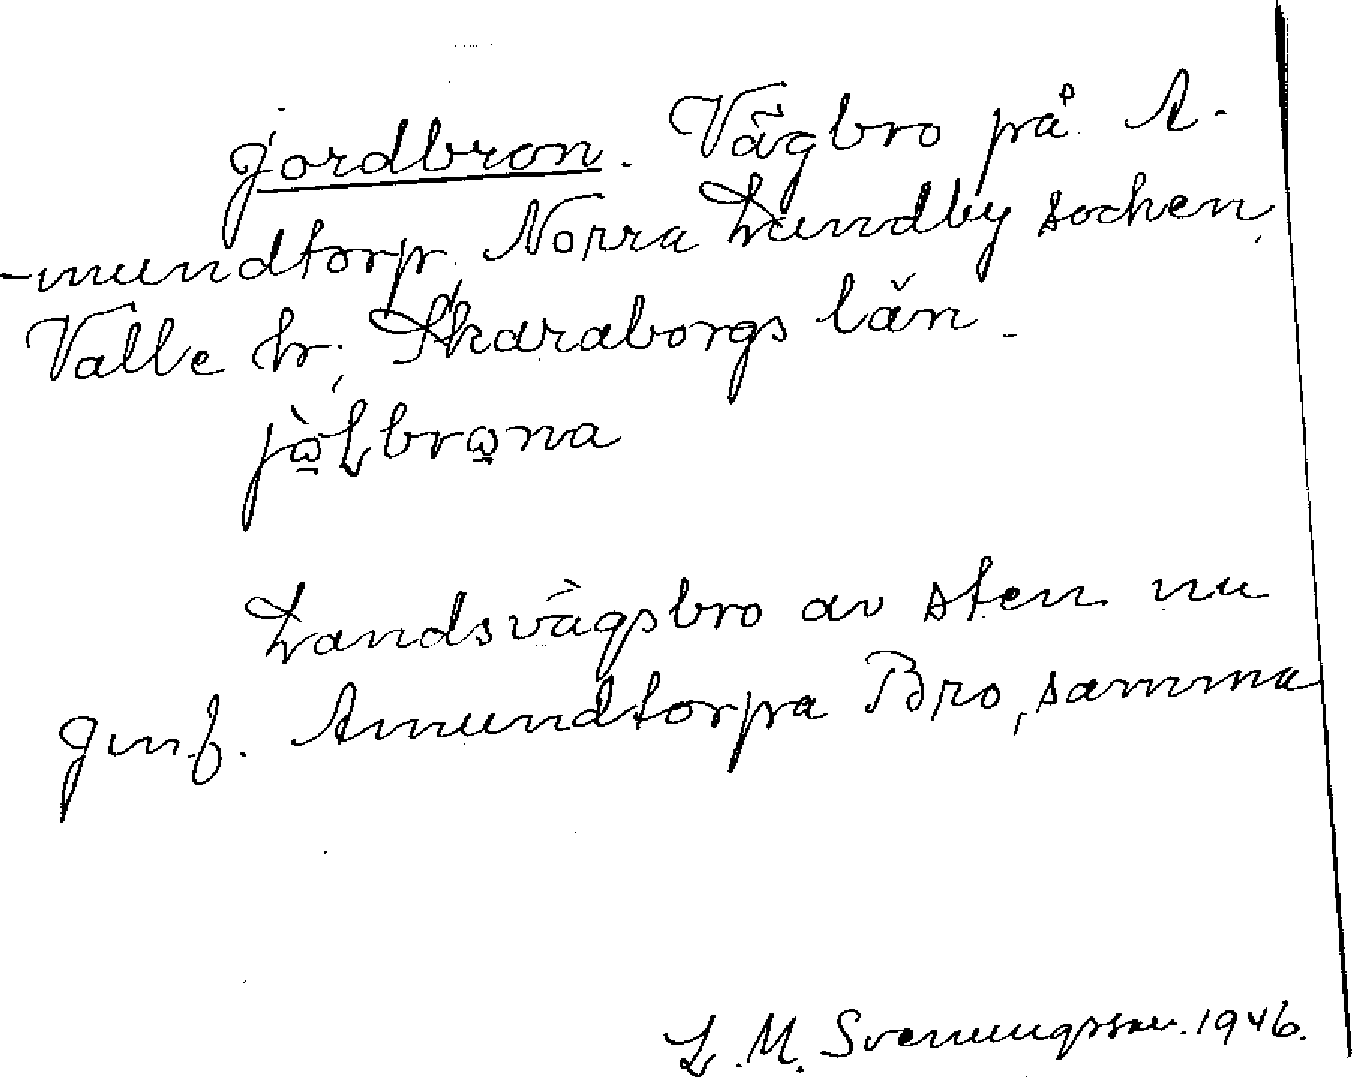 Jordbron. Vägbro på A-
mundtorp, Norra Lundby socken,
Valle hr, Skaraborgs län.
jòɷLbrɷna
Landsvägsbro av sten nu
Amundtorpa Bro, samma
L. M. Svenungsson. 1946.